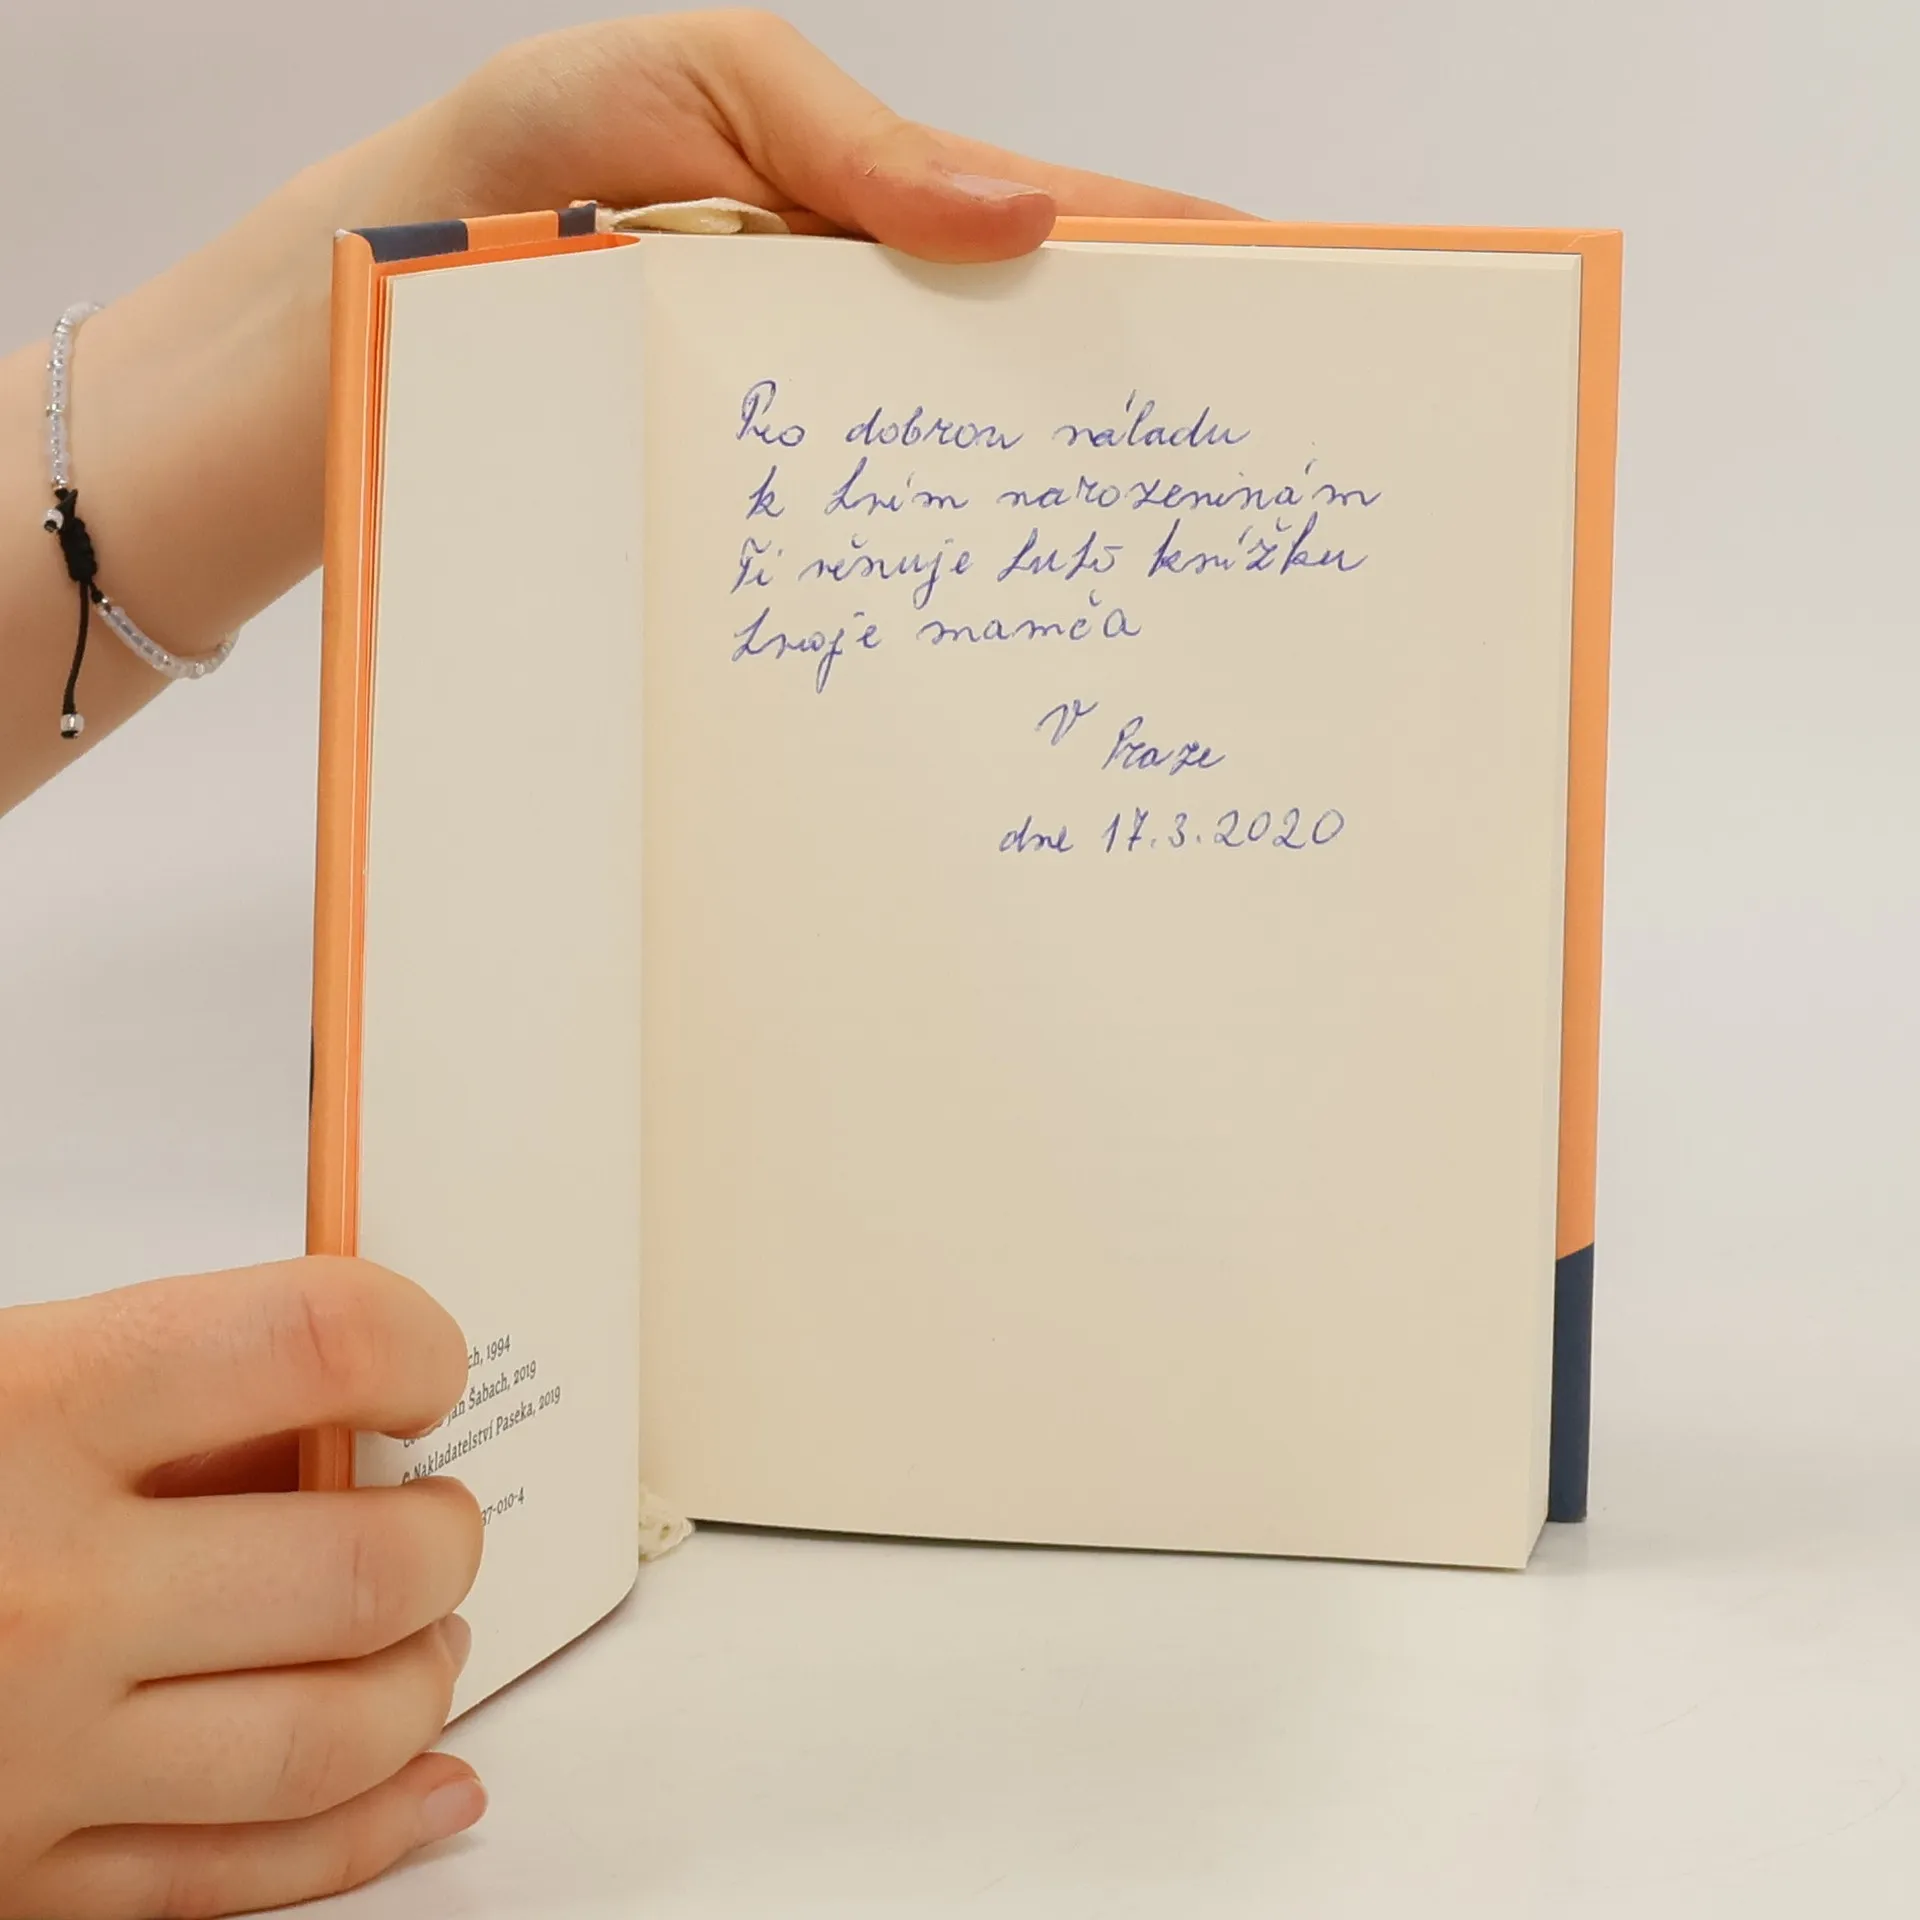 ch, 1994
Jan Šabach, 2019
© Nakladatelství Paseka, 2019
37-010-4
Pro dobrou náladu
k tvím narozeninám
Ti věnuje tuto knížku
tvoje mamča
V Praze
dne 17.3.2020